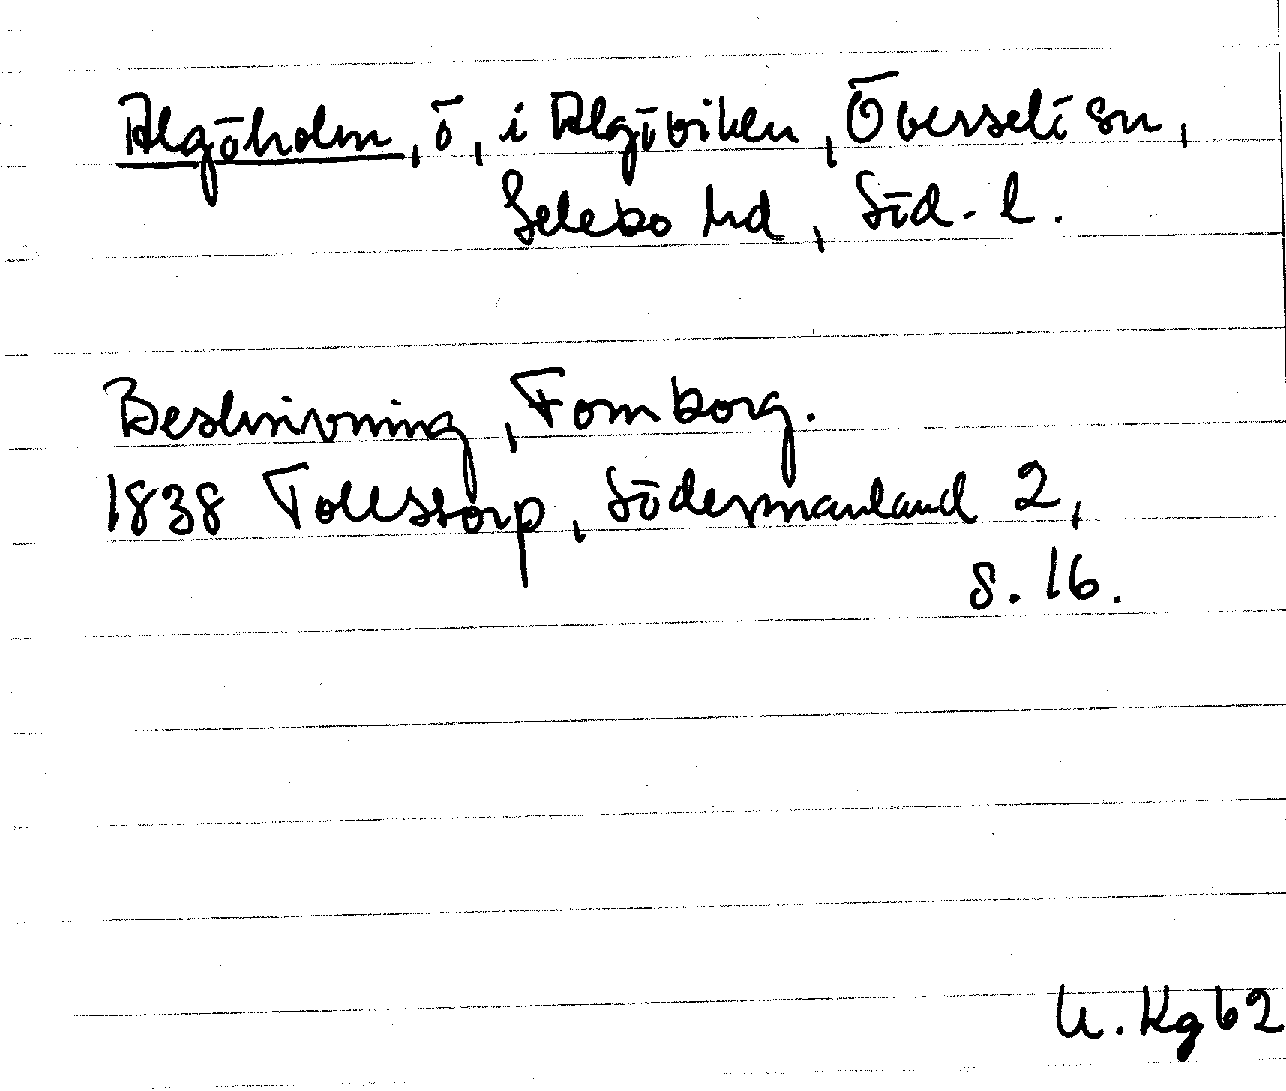 Algöholm, ö, i Algöviken, Överselö sn,
Selebo hd, Söd. l.
Beskrivning, Fornborg.
1838 Tollstorp, Södermanland 2,
s. 16.
U. Kg 62